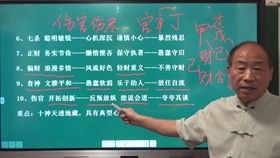 伤官伤尽 官事了
6、七杀 聪明敏锐——心机深沉 谨慎小心——暴烈残忍
7、正财 务实节俭——懒惰憎吝 保守执著——愚蠢守旧
8、偏财 浪漫多情——风流好色 轻财重义——不善守财
9、食神 文雅平和——愚蠢软弱 乐于助人——放任自流
10、伤官 开拓创新——反叛放纵 能说会道——夸夸其谈
重点：十神天透地藏，具有典型心
甲 戊
财 己
己 财 合